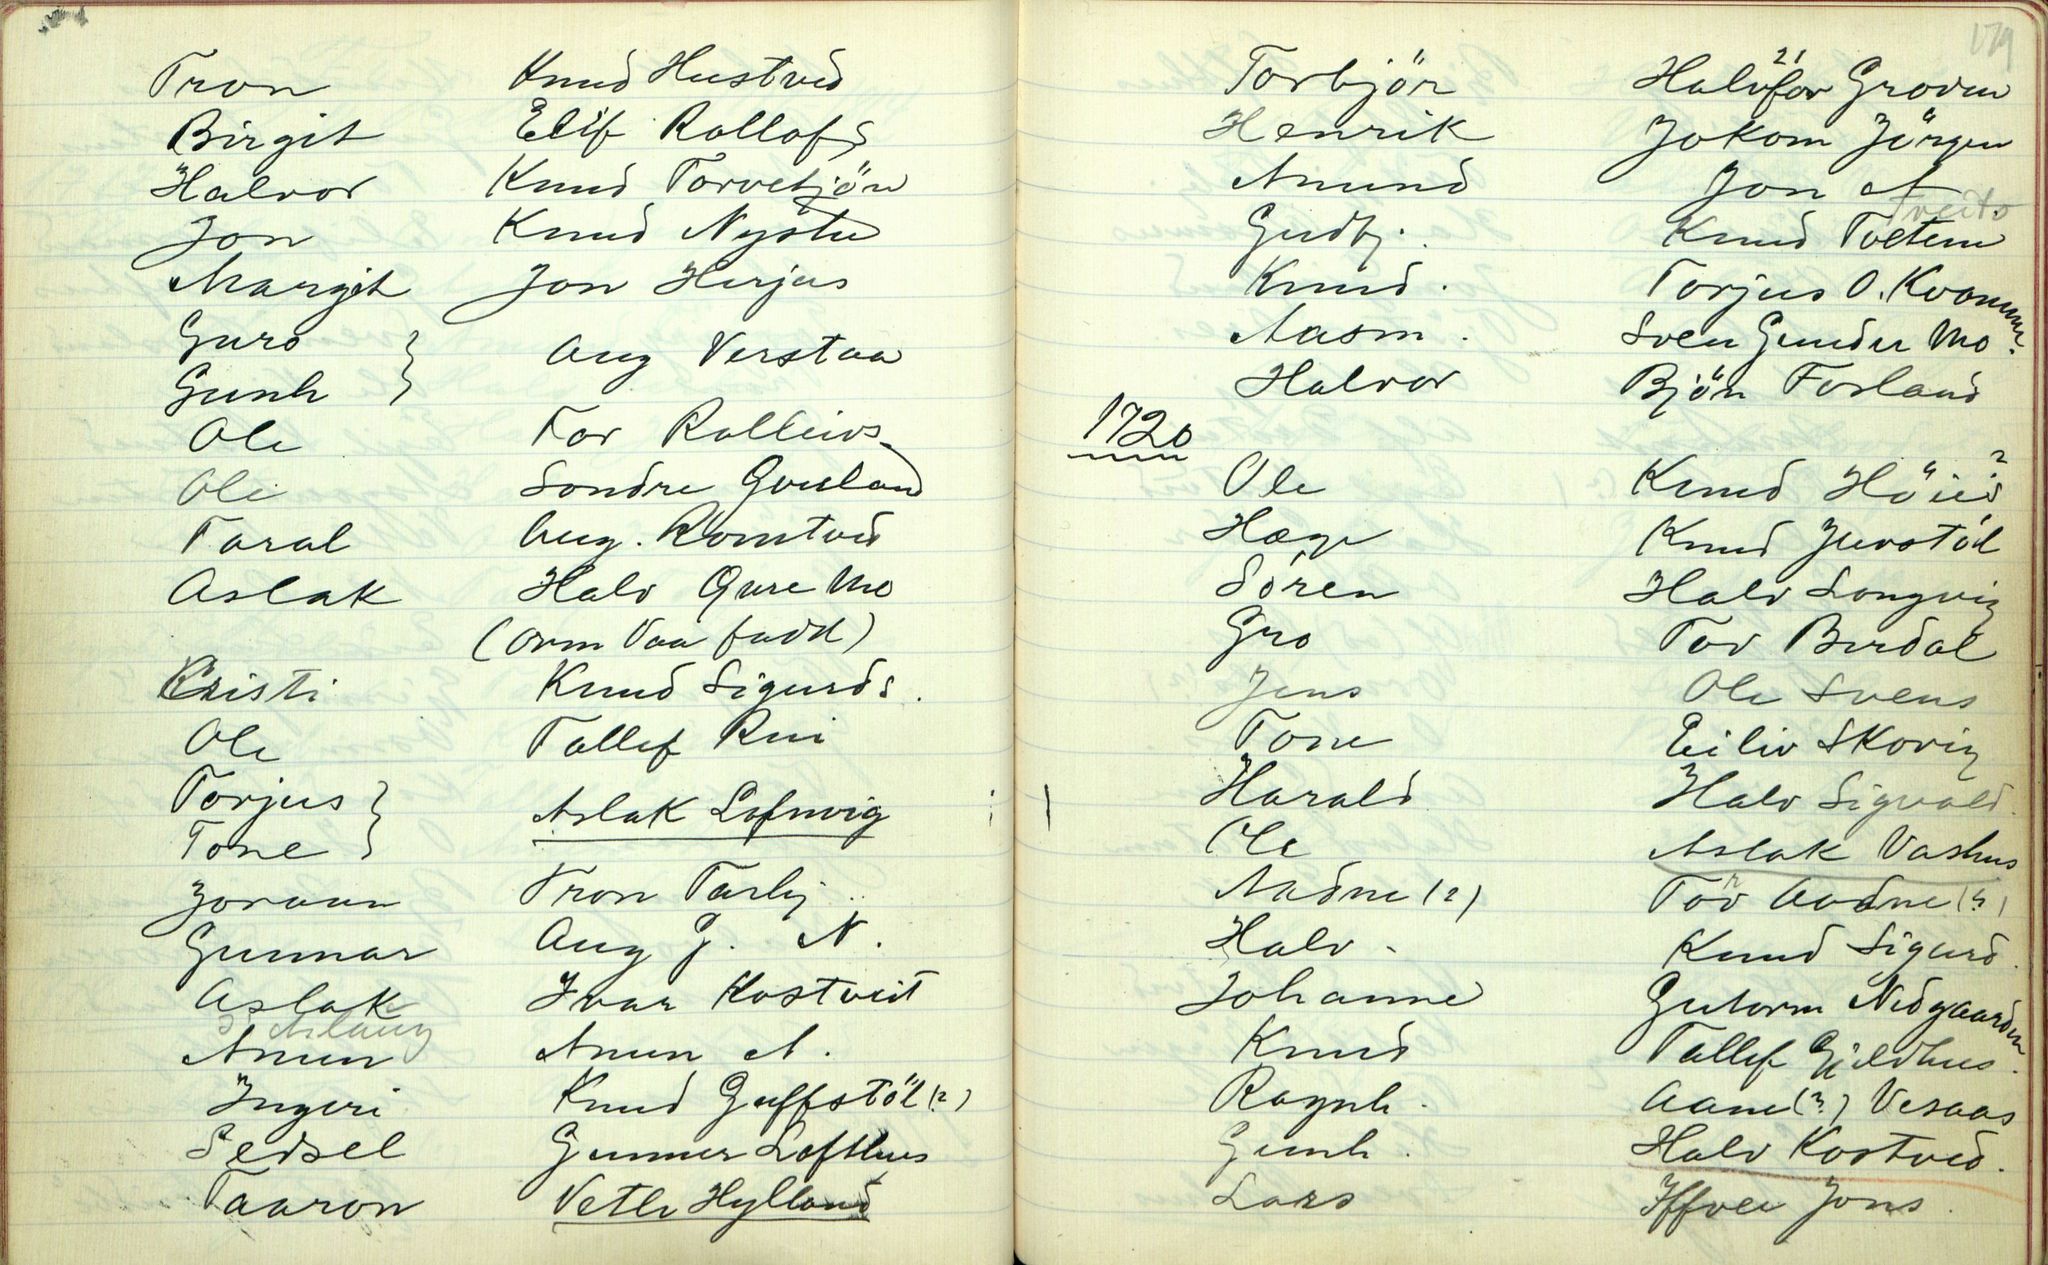 Tron Knud Hustved
Birgit Elif Rollofs
Halvor Knud Torvetjön
Jon Knud Nystu
Margit Jon Herjus
Guro
Aug Verstaa
Gunh
Ole Tor Rolleivs
Ole Sondre Gvuland
Taral Aug. Romtved
Aslak Halv Qure Mo
(orm Vaa fadd)
Kristi Knud Sigurds.
Ole Tallef Rui
Torjus
Aslak Lofnvig
Tone
Joraan Tron Tarbj.
Gunnar Aug G. N.
Aslak Ivar Kostveit
Aslaug
Anun Anun A.
Ingeri Knud Guffstöl (?)
Sedsel Gunner Lofthus
Taaron Vetle Hylland
179
Torbjör Halvfor Groven
Henrik Jokom Jörgen
Anund Jon A
Tveito
Gudbj. Knud Tvetene
Knud. Torjus O. Kvammen
Aasm. Sven Gunder Mo.
Halvor Bjön Forland
1720
Ole Knud Höied ?
Hæge Knud Juvstöl
Sören Halv Longvig
Gro Tov Burdal
Jens Ole Svens
Tone Eiliv Skovig
Harald Halv Sigvald.
Ole Aslak Vashus
Aadne (?) Tov Aadne (?)
Halv. Knud Sigurd.
Johanne Gutorm Nedgaarden
Knud Tallef Gjeldhus.
Ragnh. Aane (?) Vesaas
Gunh. Halv Kostved.
Lars Iffver Jons.